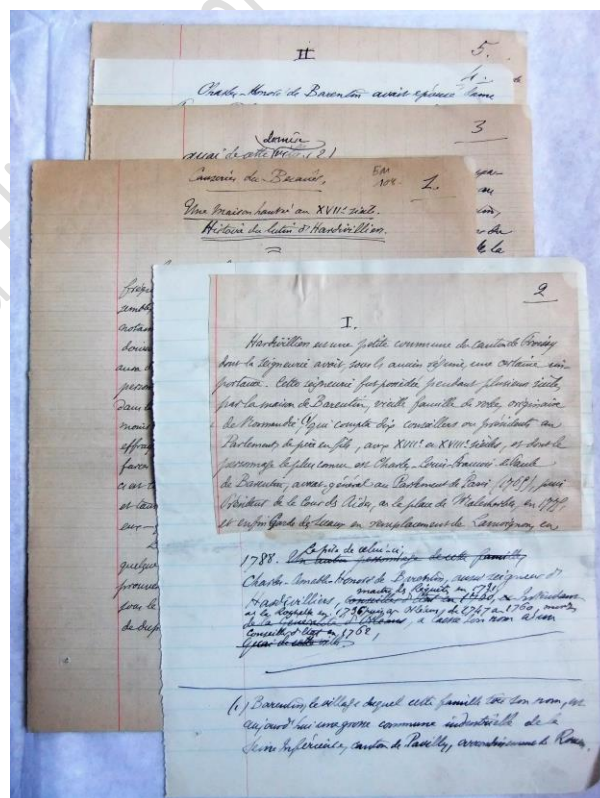 II
5.
4.
Charles-Honoré de Barentin avait épousé dame
3
Louise
quai de cette ville (2)
Causeries du Beauvaisis.
1.
Une maison hantée au XVIIe siècle.
Histoire du lutin d'Hardivilliers.
2
I.
Hardivilliers est une petite commune du canton de Froissy
dont la seigneurie avait, sous l'ancien régime, une certaine im-
portance. Cette seigneurie fut possédée pendant plusieurs siècles
par la maison de Barentin, vieille famille de robe, originaire
de Normandie (1) qui compta dix conseillers ou présidents au
Parlement de père en fils, aux XVIIe et XVIIIe siècles, et dont le
personnage le plus connu est Charles-Louis-François de Paule
de Barentin, avocat général au Parlement de Paris (1769), puis
Président de la Cour des Aides, en la place de Malesherbes, en 1775,
et enfin Garde des Sceaux en remplacement de Lamoignon, en
Le père de celui-ci,
1788. Un autre personnage de cette famille
Charles-Amable-Honoré de Barentin, aussi seigneur d'
maître des Requêtes en 1731
Hardivilliers, conseiller d'Etat en
à la Rochelle en 1736 puis à Orléans, de 1747 à 1760, mort
de la Généralité d'Orléans, a laissé son nom à un
Conseiller d'Etat en 1762,
quai de cette ville
(1) Barentin, le village duquel cette famille tire son nom, est
aujourd'hui une grosse commune industrielle de la
Seine Inférieure, canton de Pavilly, arrondissement de Rouen.